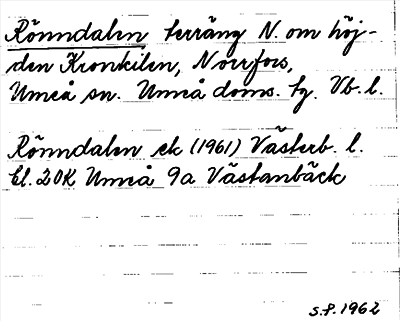 Rönndalen terräng N. om höj-
den Kronkilen, Norrfors,
Umeå sn. Umeå doms. tg. Vb. l.
Rönndalen ek (1961) Västerb. l.
bl. 20K Umeå 9a Västanbäck
S.P. 1962